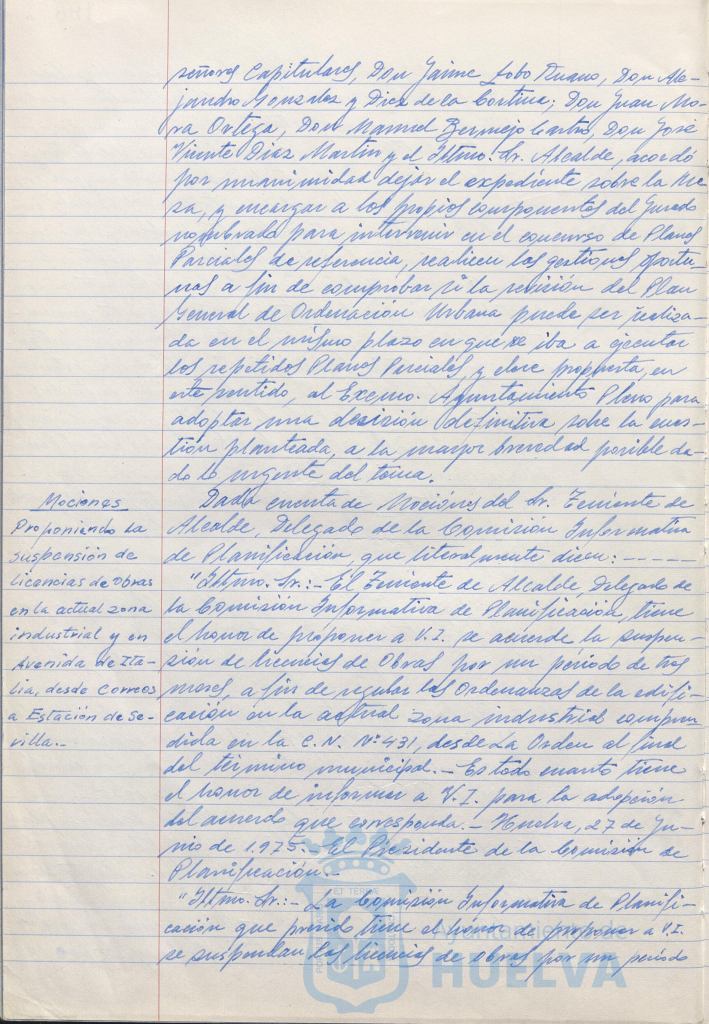 señores Capitulares, Don Jaime Lobo Ruano, Don Ale-
jandro Gonzalez y Diez de la Cortina; Don Juan Mo-
ra Ortega, Don Manuel Bermejo Castro, Don José
Vicente Diaz Martin y el Iltmo. Sr. Alcalde, acordó
por unanimidad dejar el expediente sobre la Me-
sa, y encargar a los propios componentes del Jurado
nombrado para intervenir en el concurso de Planes
Parciales de referencia, realicen las gestiones oportu-
nas a fin de comprobar si la revisión del Plan
General de Ordenación Urbana puede ser realiza-
da en el mismo plazo en que se iba a ejecutar
los repetidos Planes Parciales, y eleve propuesta, en
este sentido, al Excmo. Ayuntamiento Pleno para
adoptar una decisión definitiva sobre la cues-
tión planteada, a la mayor brevedad posible da-
do lo urgente del tema.
Mociones
Proponiendo la
suspensión de
licencias de obras
en la actual zona
industrial y en
Avenida de Ita-
lia, desde Correos
a Estación de Se-
villa..
Dada cuenta de Mociones del Sr. Teniente de
Alcalde, Delegado de la Comisión Informativa
de Planificación, que literalmente dicen: - - - - -
"Iltmo. Sr.: - El Teniente de Alcalde, Delegado de
la Comisión Informativa de Planificación, tiene
el honor de proponer a V.I. se acuerde la suspen-
sión de licencias de Obras por un período de tres
meses, a fin de regular las Ordenanzas de la edifi-
cación en la actual zona industrial compren-
dida en la C.N. Nº 431, desde La Orden al final
del término municipal. - Es todo cuanto tiene
el honor de informar a V.I. para la adopción
del acuerdo que corresponda. - Huelva, 27 de Ju-
nio de 1.975. - El Presidente de la Comisión de
Planificación. -
"Iltmo. Sr.: - La Comisión Informativa de Planifi-
cación que presido tiene el honor de proponer a V.I.
se suspendan las licencias de obras por un período
Ayuntamiento de
HUELVA